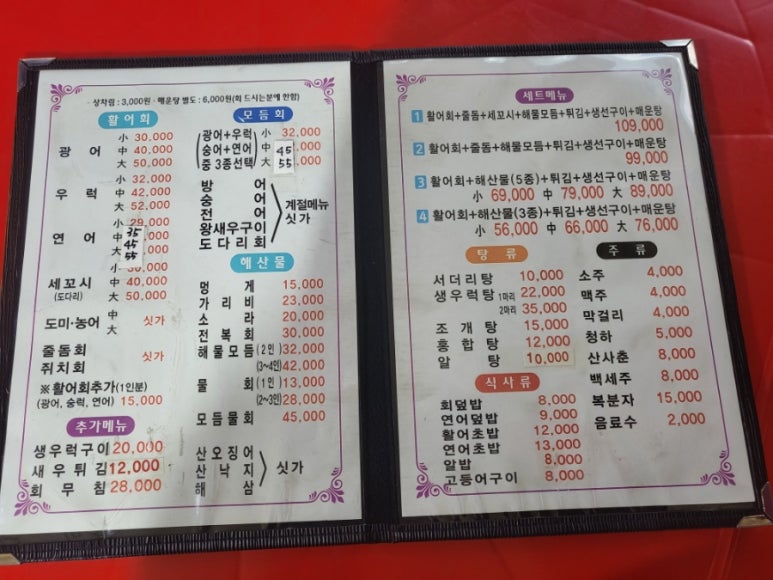 · 상차림 : 3,000원 · 매운탕 별도 : 6,000원(회 드시는분에 한함)
활어회
광 어 小 30,000
中 40,000
大 50,000
우 럭 小 32,000
中 42,000
大 52,000
연 어 小 29,000
中 35
大 45
55
세꼬시 小 30,000
(도다리) 中 40,000
大 50,000
도미·농어 中 싯가
大
줄돔회 싯가
쥐치회
※활어회추가(1인분)
(광어, 숭럭, 연어) 15,000
추가메뉴
생우럭구이 20,000
새우튀김 12,000
회 무 침 28,000
모듬회
광어+우럭 小 32,000
숭어+연어 中 45 ,000
중 3종선택 大 55 ,000
방 어
숭 어
전 어
왕새우구이
도다리회
계절메뉴
싯가
해산물
멍 게 15,000
가 리 비 23,000
소 라 20,000
전 복 회 30,000
해물모듬 (2인) 32,000
(3~4인) 42,000
물 회 (1인) 13,000
(2~3인) 28,000
모듬물회 45,000
산오징어
산 낙 지
해 삼
싯가
세트메뉴
1 활어회+줄돔+세꼬시+해물모듬+튀김+생선구이+매운탕
109,000
2 활어회+줄돔+해물모듬+튀김+생선구이+매운탕
99,000
3 활어회+해산물(5종)+튀김+생선구이+매운탕
小 69,000 中 79,000 大 89,000
4 활어회+해산물(3종)+튀김+생선구이+매운탕
小 56,000 中 66,000 大 76,000
탕 류
서더리탕 10,000
생우럭탕 1마리 22,000
2마리 35,000
조 개 탕 15,000
홍 합 탕 12,000
알 탕 10,000
식사류
회덮밥 8,000
연어덮밥 9,000
활어초밥 12,000
연어초밥 13,000
알밥 8,000
고등어구이 8,000
주 류
소주 4,000
맥주 4,000
막걸리 4,000
청하 5,000
산사춘 8,000
백세주 8,000
복분자 15,000
음료수 2,000